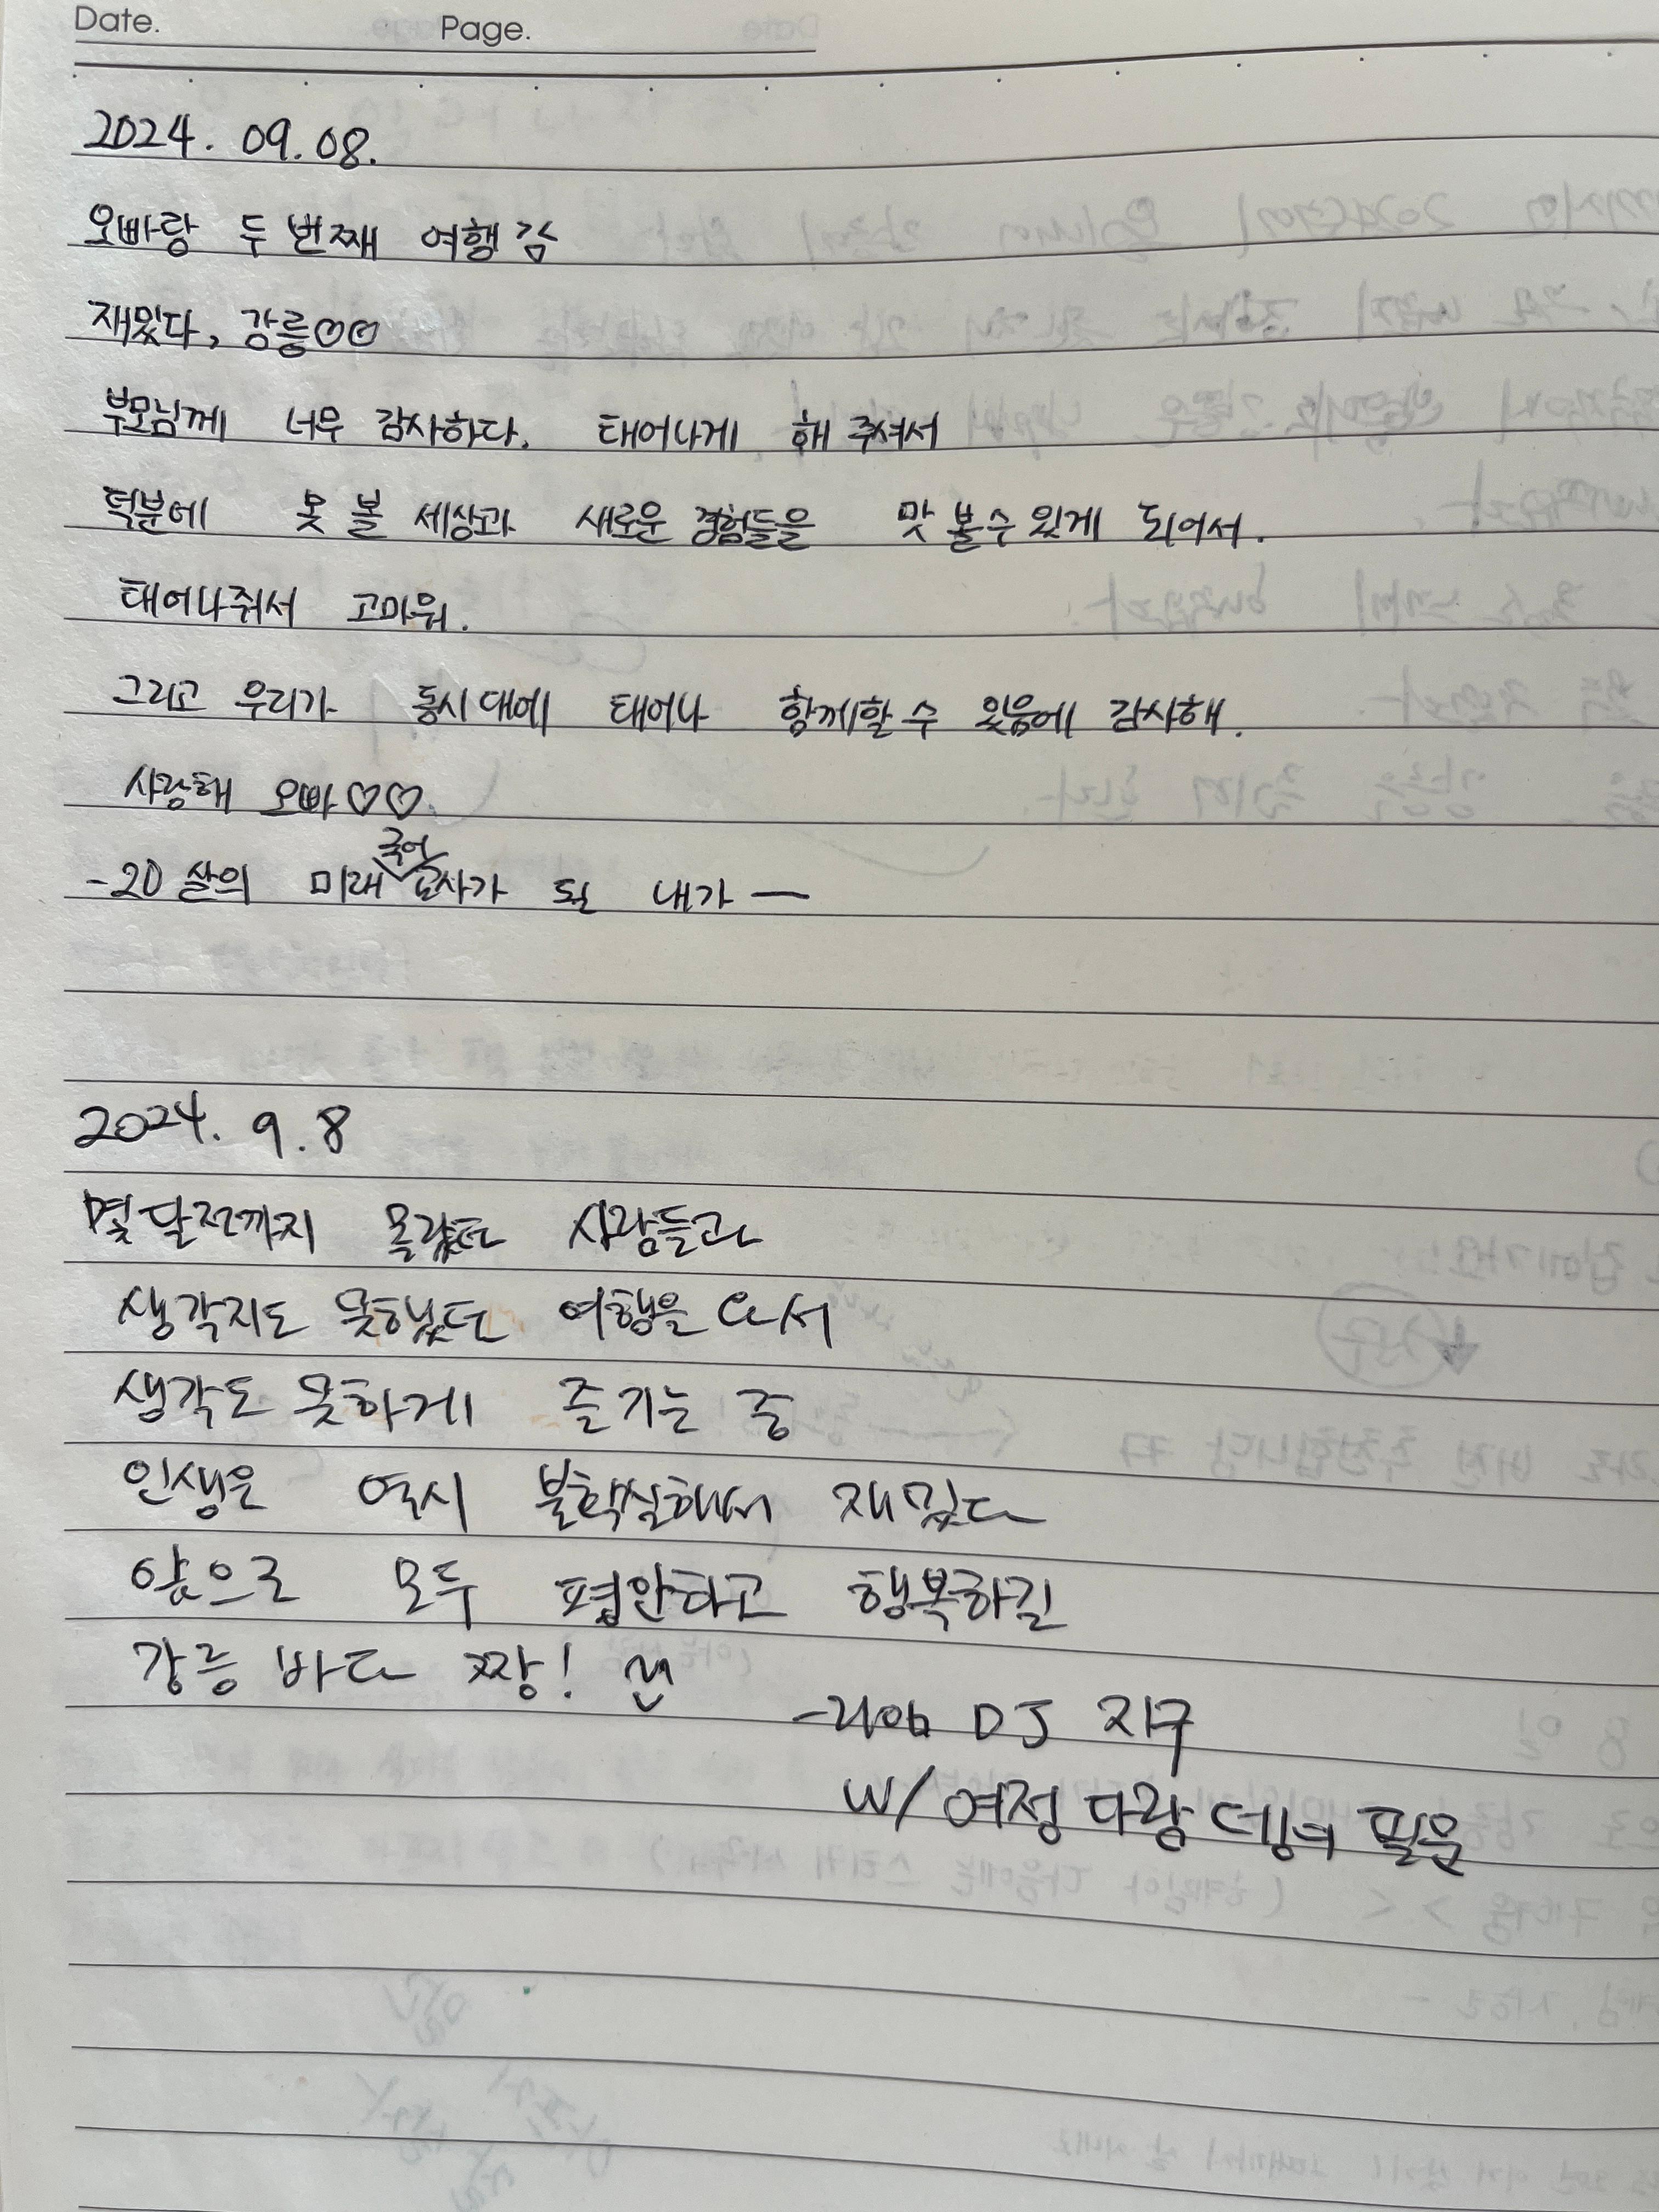 Date. Page.
2024. 09. 08.
오빠랑 두 번째 여행 감
재밌다, 강릉♡♡
부모님께 너무 감사하다. 태어나게 해 주셔서
덕분에 못 볼 세상과 새로운 경험들을 맛 볼 수 있게 되어서.
태어나줘서 고마워.
그리고 우리가 동시대에 태어나 함께할 수 있음에 감사해.
사랑해 오빠♡♡
국어
-20살의 미래 교사가 될 내가 —
2024. 9. 8
몇 달 전까지 몰랐던 사람들과
생각지도 못했던 여행을 와서
생각도 못하게 즐기는 중
인생은 역시 불확실해서 재밌다
앞으로 모두 평안하고 행복하길
강릉 바다 짱!
DJ 지구
W/ 여정 다랑 필운